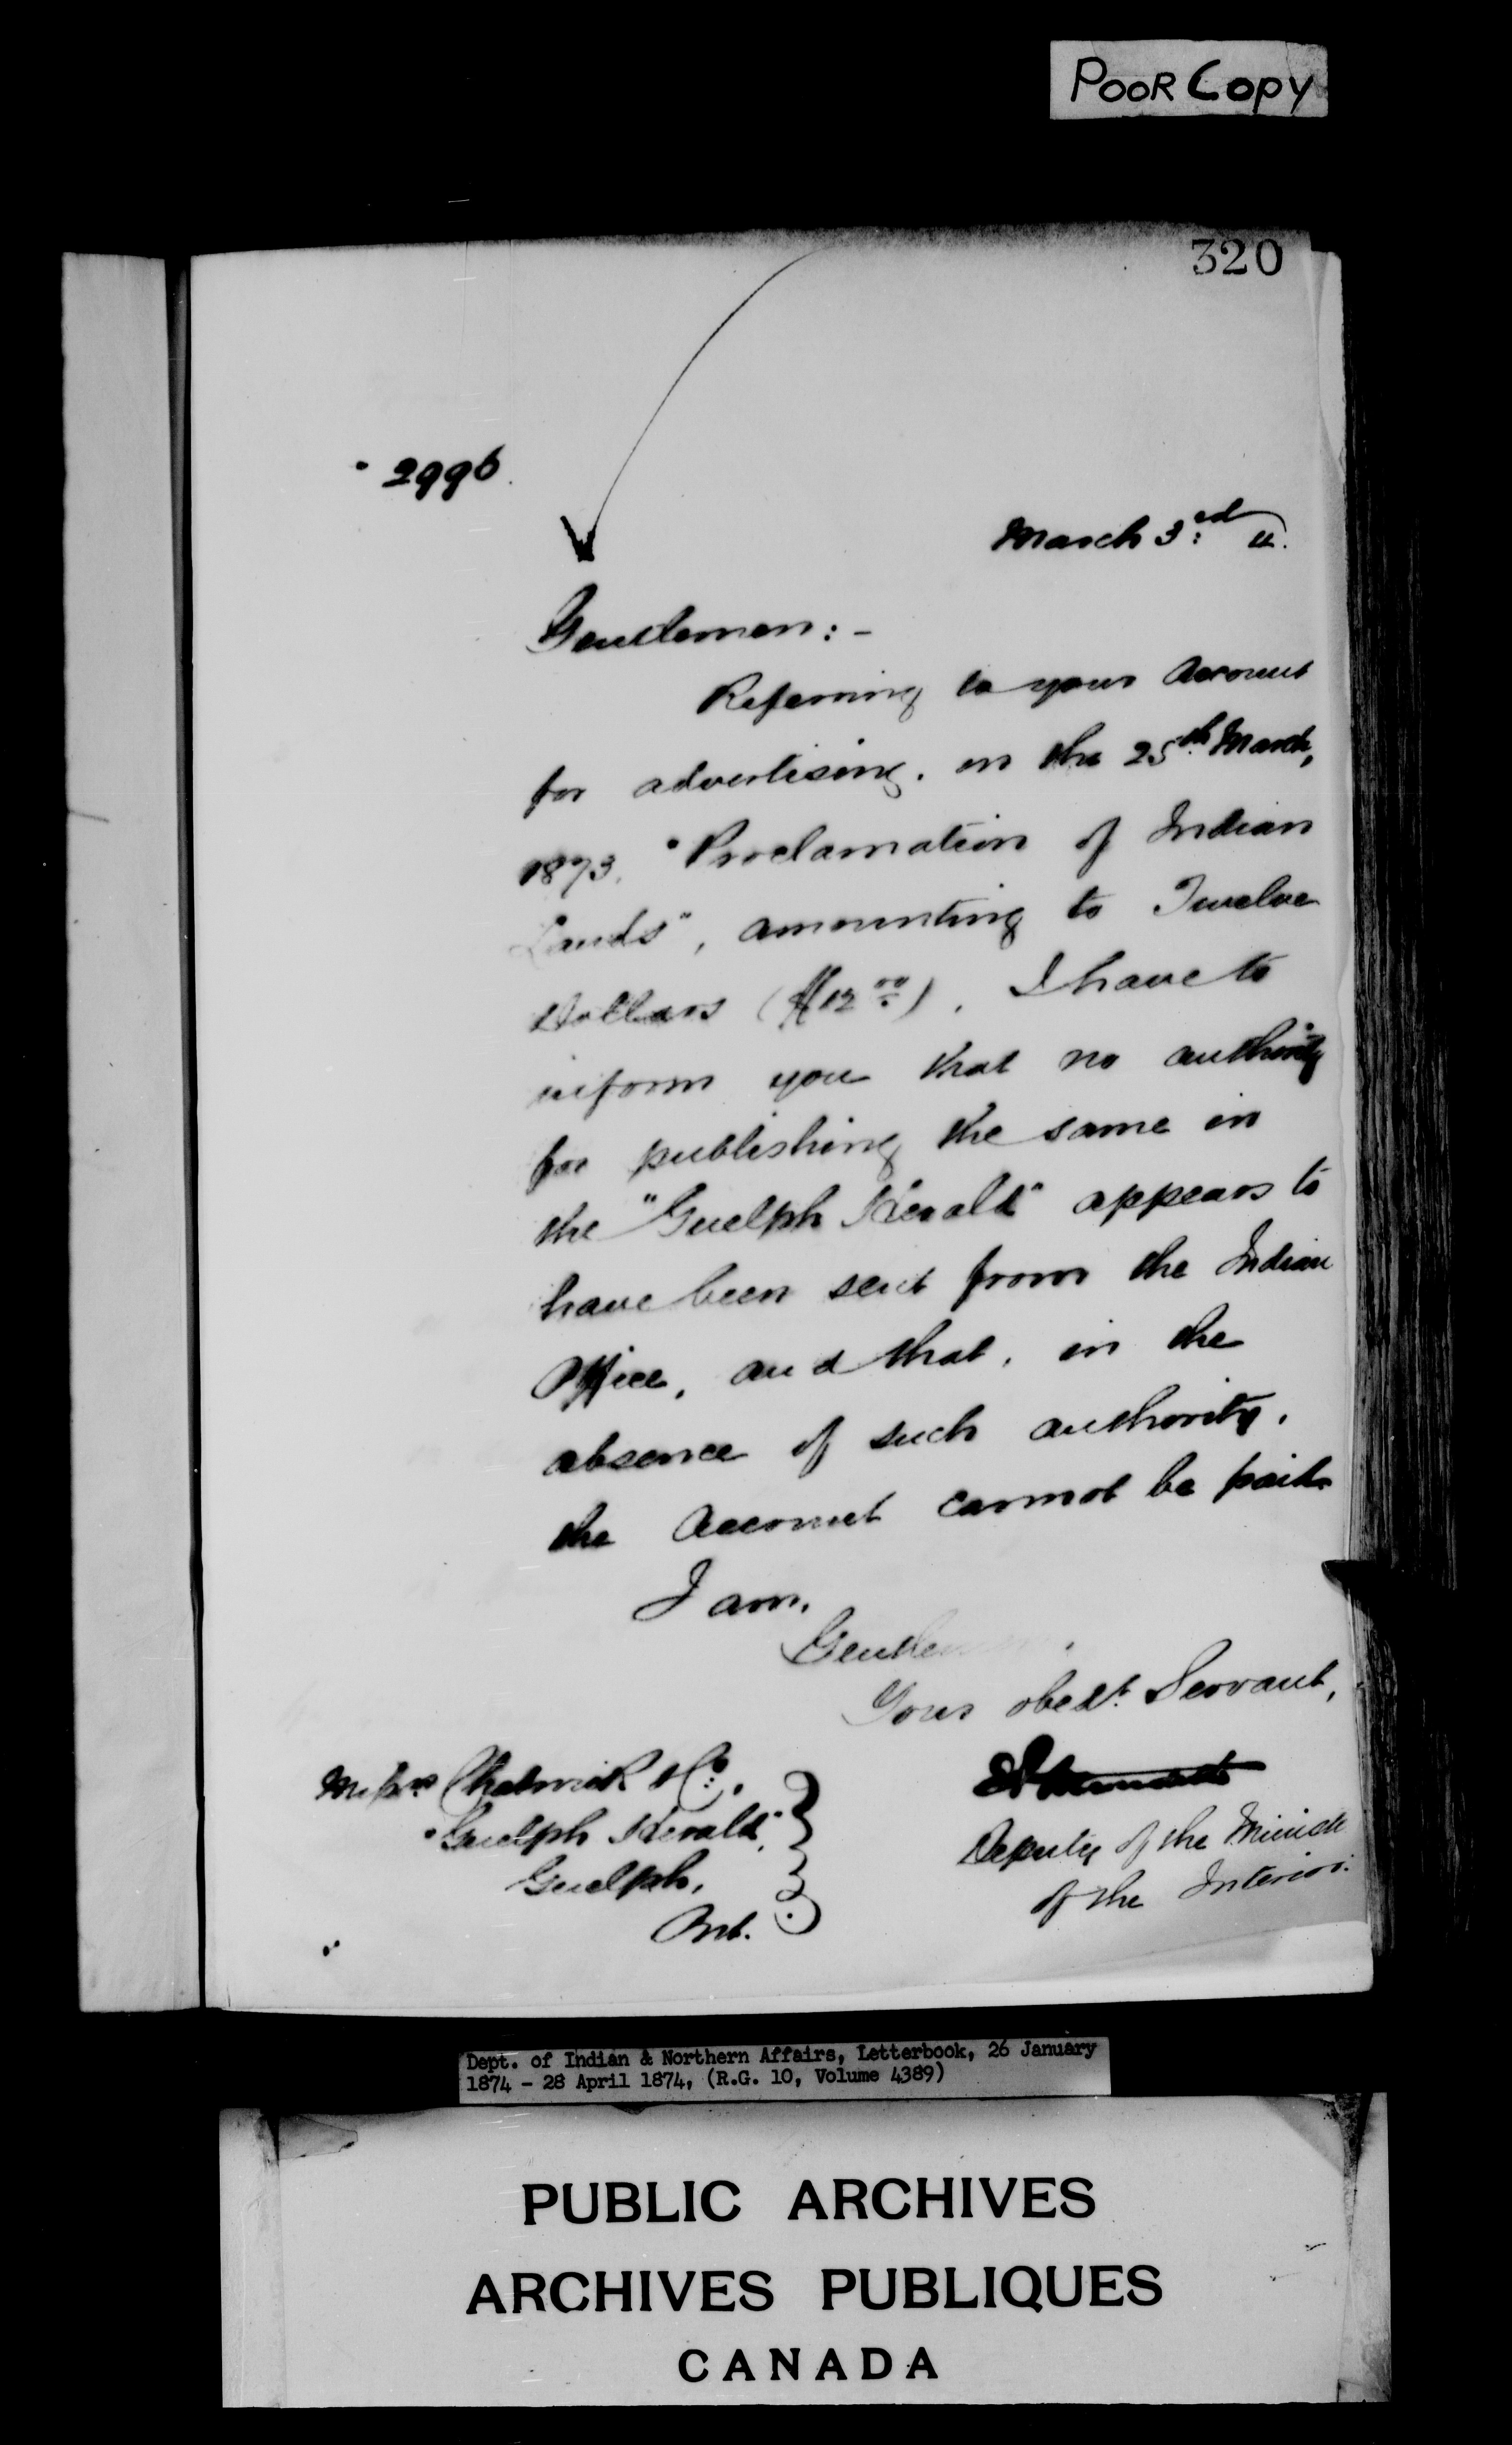 POOR COPY
320
2996.
March 3rd
Gentlemen: -
Referring to your Account
for advertising, on the 25th March,
1873, "Proclamation of Indian
Lands", amounting to Twelve
Dollars ($12.00), I have to
inform you that no authority
for publishing the same in
the "Guelph Herald" appears to
have been sent from the Indian
Office, and that, in the
absence of such authority,
the Account cannot be paid.
I am,
Gentlemen,
Your obedt. Servant,
Deputy of the Minister
of the Interior.
Messrs Chadwick & Co.,
"Guelph Herald",
Guelph,
Ont.
Dept. of Indian & Northern Affairs, Letterbook, 26 January
1874 - 28 April 1874, (R.G. 10, Volume 4389)
PUBLIC ARCHIVES
ARCHIVES PUBLIQUES
CANADA